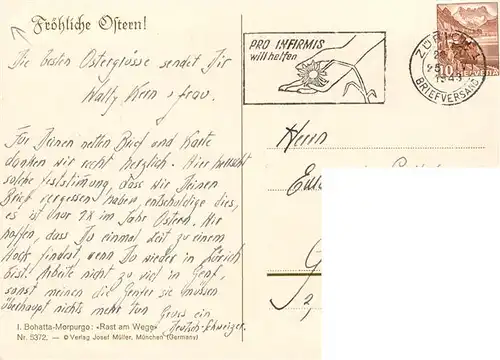 Fröhliche Ostern!
Die besten Ostergrüsse sendet Dir
Wally Kern & frau.
Für Deinen netten Brief und Karte
danken wir recht herzlich. Hier herrscht
solche feststimmung, dass wir Deinen
Brief vergessen haben, entschuldige dies,
es ist nur 1x im Jahr Ostern. Wir
hoffen, dass Du einmal Zeit zu einem
Hock findest, wenn Du wieder in Zürich
bist. Arbeite nicht zu viel in Genf,
sonst meinen die Genfer sie müssen
überhaupt nichts mehr tun Gruss ein
Deutsch-Schweizer.
I. Bohatta-Morpurgo: «Rast am Wege»
Nr. 5372. — © Verlag Josef Müller, München (Germany)
PRO INFIRMIS
will helfen
ZÜRICH
BRIEFVERSAND
10
HELVETIA
Herrn